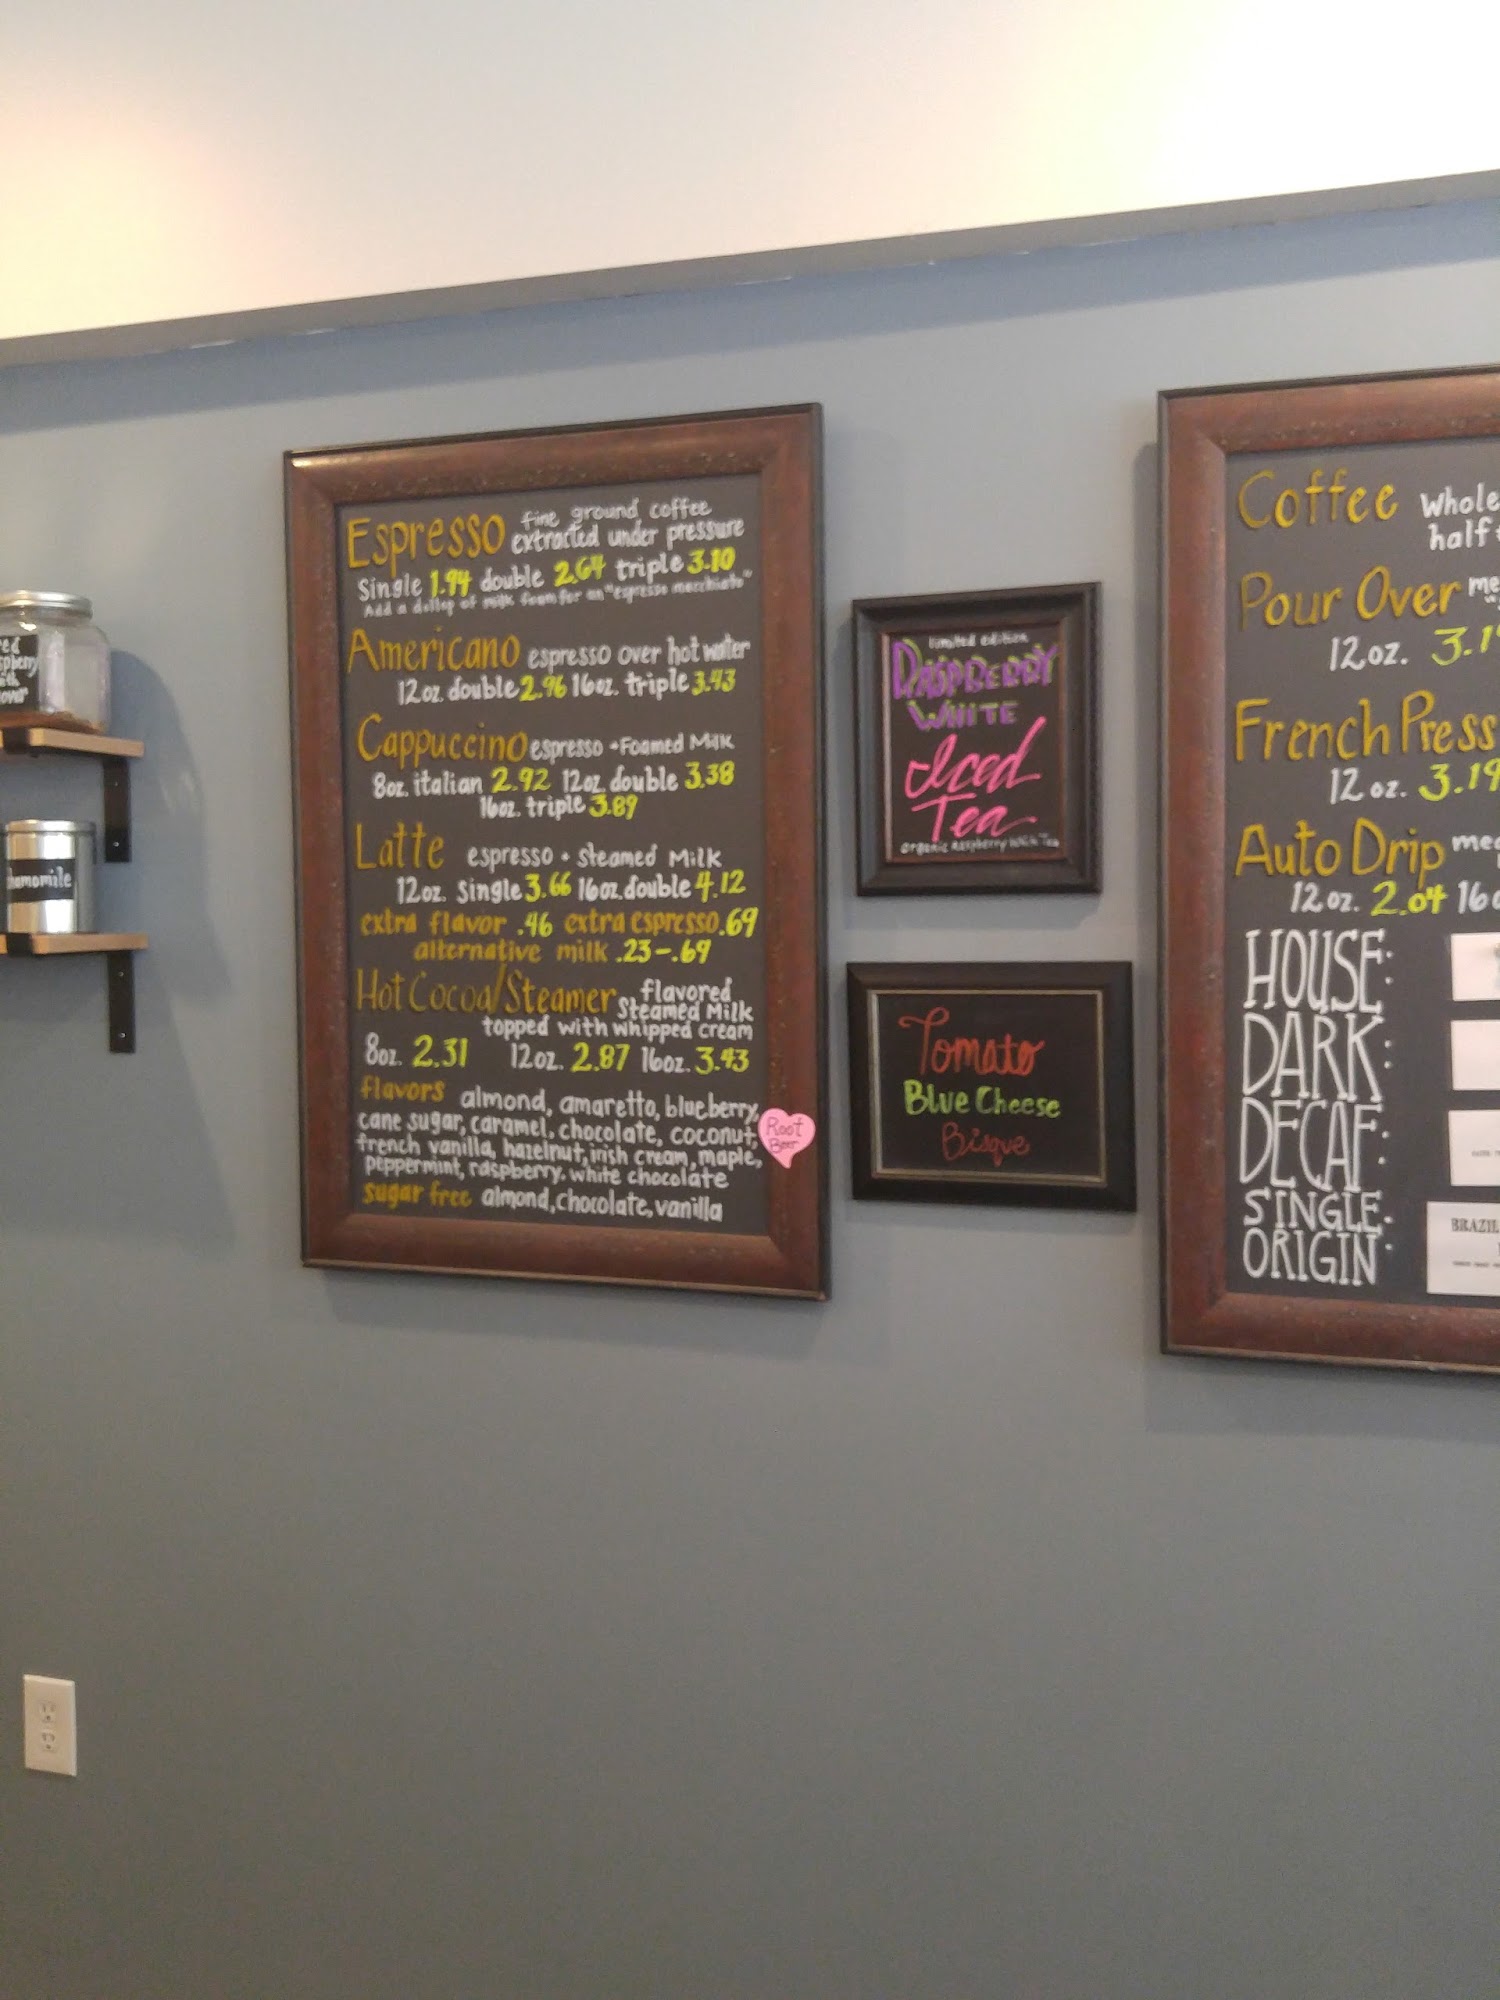 Espresso fine ground coffee
extracted under pressure
Single 1.94 double 2.64 triple 3.10
Add a dollop of milk foam for an "espresso macchiato"
Americano espresso over hot water
12oz. double 2.96 16oz. triple 3.43
Cappuccino espresso + Foamed Milk
8oz. italian 2.92 12oz. double 3.38
16oz. triple 3.89
Latte espresso + Steamed Milk
12oz. Single 3.66 16oz. double 4.12
extra flavor .46 extra espresso .69
alternative milk .23-.69
Hot Cocoa/Steamer flavored
Steamed Milk
topped with whipped cream
8oz. 2.31 12oz. 2.87 16oz. 3.43
flavors almond, amaretto, blueberry,
cane sugar, caramel, chocolate, coconut,
french vanilla, hazelnut, irish cream, maple,
peppermint, raspberry, white chocolate
Root
Beer
sugar free almond, chocolate, vanilla
limited edition
RASPBERRY
WHITE
Iced
Tea
organic Raspberry White Tea
Tomato
Blue Cheese
Bisque
Coffee Whole
half
Pour Over
12oz. 3.19
French Press
12oz. 3.19
Auto Drip
12oz. 2.04 16o
HOUSE:
DARK:
DECAF:
SINGLE
ORIGIN:
BRAZIL